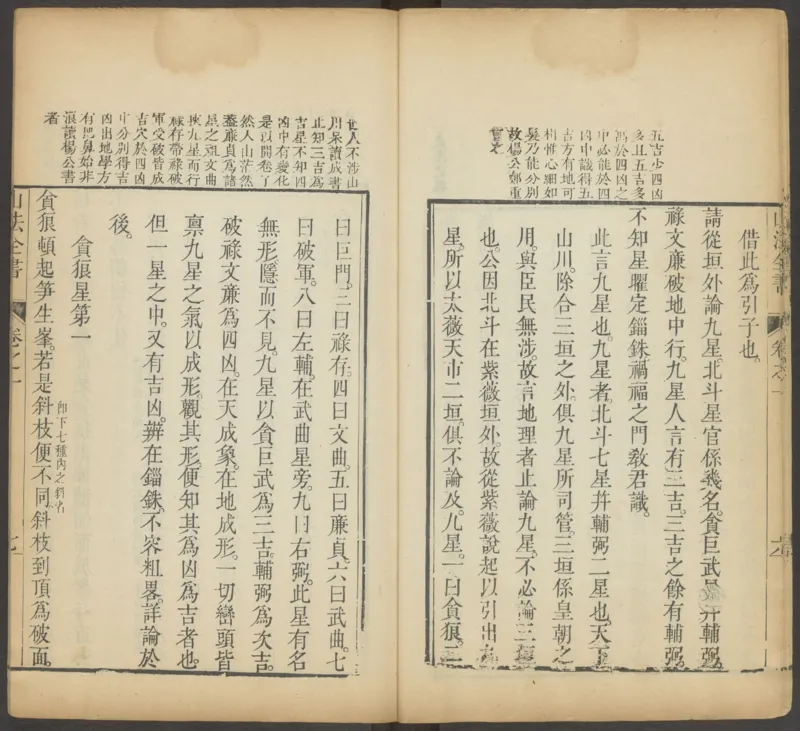 五吉少四凶
多且五吉多
馮於四凶之
中必能於四
凶中識得五
吉方有地可
相惟心細如
髮乃能分別
故楊公鄭重
言之
借此為引子也。
請從垣外論九星。北斗星官係幾名。貪巨武星并輔弼。
祿文廉破地中行。九星人言有三吉。三吉之餘有輔弼。
不知星曜定錙銖。禍福之門教君識。
此言九星也。九星者。北斗七星并輔弼二星也。天下
山川。除合三垣之外。俱九星所司管。三垣係皇朝之
用。與臣民無涉。故言地理者止論九星。不必論三垣
也。公因北斗在紫薇垣外。故從紫薇說起以引出九
星。所以太薇天市二垣。俱不論及。九星。一曰貪狼。二
山法全書
卷之一
世人不涉山
川呆讀成書
止知三吉為
吉星不知四
凶中有變化
是以開卷了
然入山茫然
蓋廉貞為諸
星之祖文曲
挾九星而行
祿存帶祿破
軍受破皆成
吉穴於四凶
中分別得吉
凶出地學方
有把鼻始非
浪讀楊公書
者
曰巨門。三曰祿存。四曰文曲。五曰廉貞。六曰武曲。七
曰破軍。八曰左輔。在武曲星旁。九曰右弼。此星有名
無形。隱而不見。九星以貪巨武為三吉。輔弼為次吉。
破祿文廉為四凶。在天成象。在地成形。一切巒頭皆
稟九星之氣以成形。觀其形。便知其為凶為吉者也。
但一星之中。又有吉凶。辨在錙銖。不容粗畧。詳論於
後。
貪狼星第一
貪狼頓起笋生峯。若是斜枝便不同。斜枝到頂為破面。
卽下七種內之斜名
山法全書
卷之一